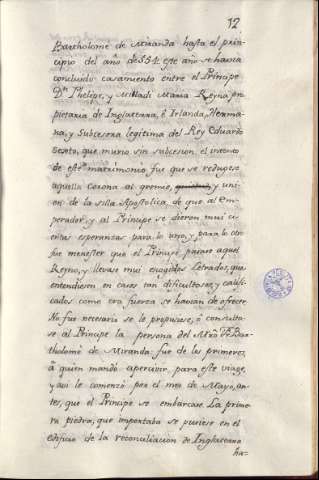 12
Bartholome de Miranda hasta el prin-
cipio del año de 554. este año se havia
concluido casamiento entre el Principe
Dn. Phelipe, y Miladi Maria Reyna pro-
pietaria de Inglaterra, è Irlanda, Herma-
na, y Subcesora legitima del Rey Eduardo
Sexto, que murio sin subcesion. el intento
de este matrimonio fue que se redugese
aquella Corona al gremio, y uni-
on de la silla Apostolica, de que al Em-
perador, y al Principe se dieron mui ci-
ertas esperanzas para lo uno, y para lo otro
fue menester que el Principe pasase aquel
Reyno, y llevase mui escogidos Letrados, que
entendiesen en casos tan dificultosos, y califi-
cados como era fuerza se havian de ofrecer.
No fue necesario se le propusiese, ò consulta-
se al Principe la persona del Mro. Fr. Bar-
tholomè de Miranda: fue de los primeros,
à quien mandò apercivir, para este viage,
y asi le comenzó por el mes de Mayo, an-
tes, que el Principe se embarcase. La prime-
ra piedra, que importaba se pusiese en el
edificio de la reconciliacion de Inglaterra
ha-